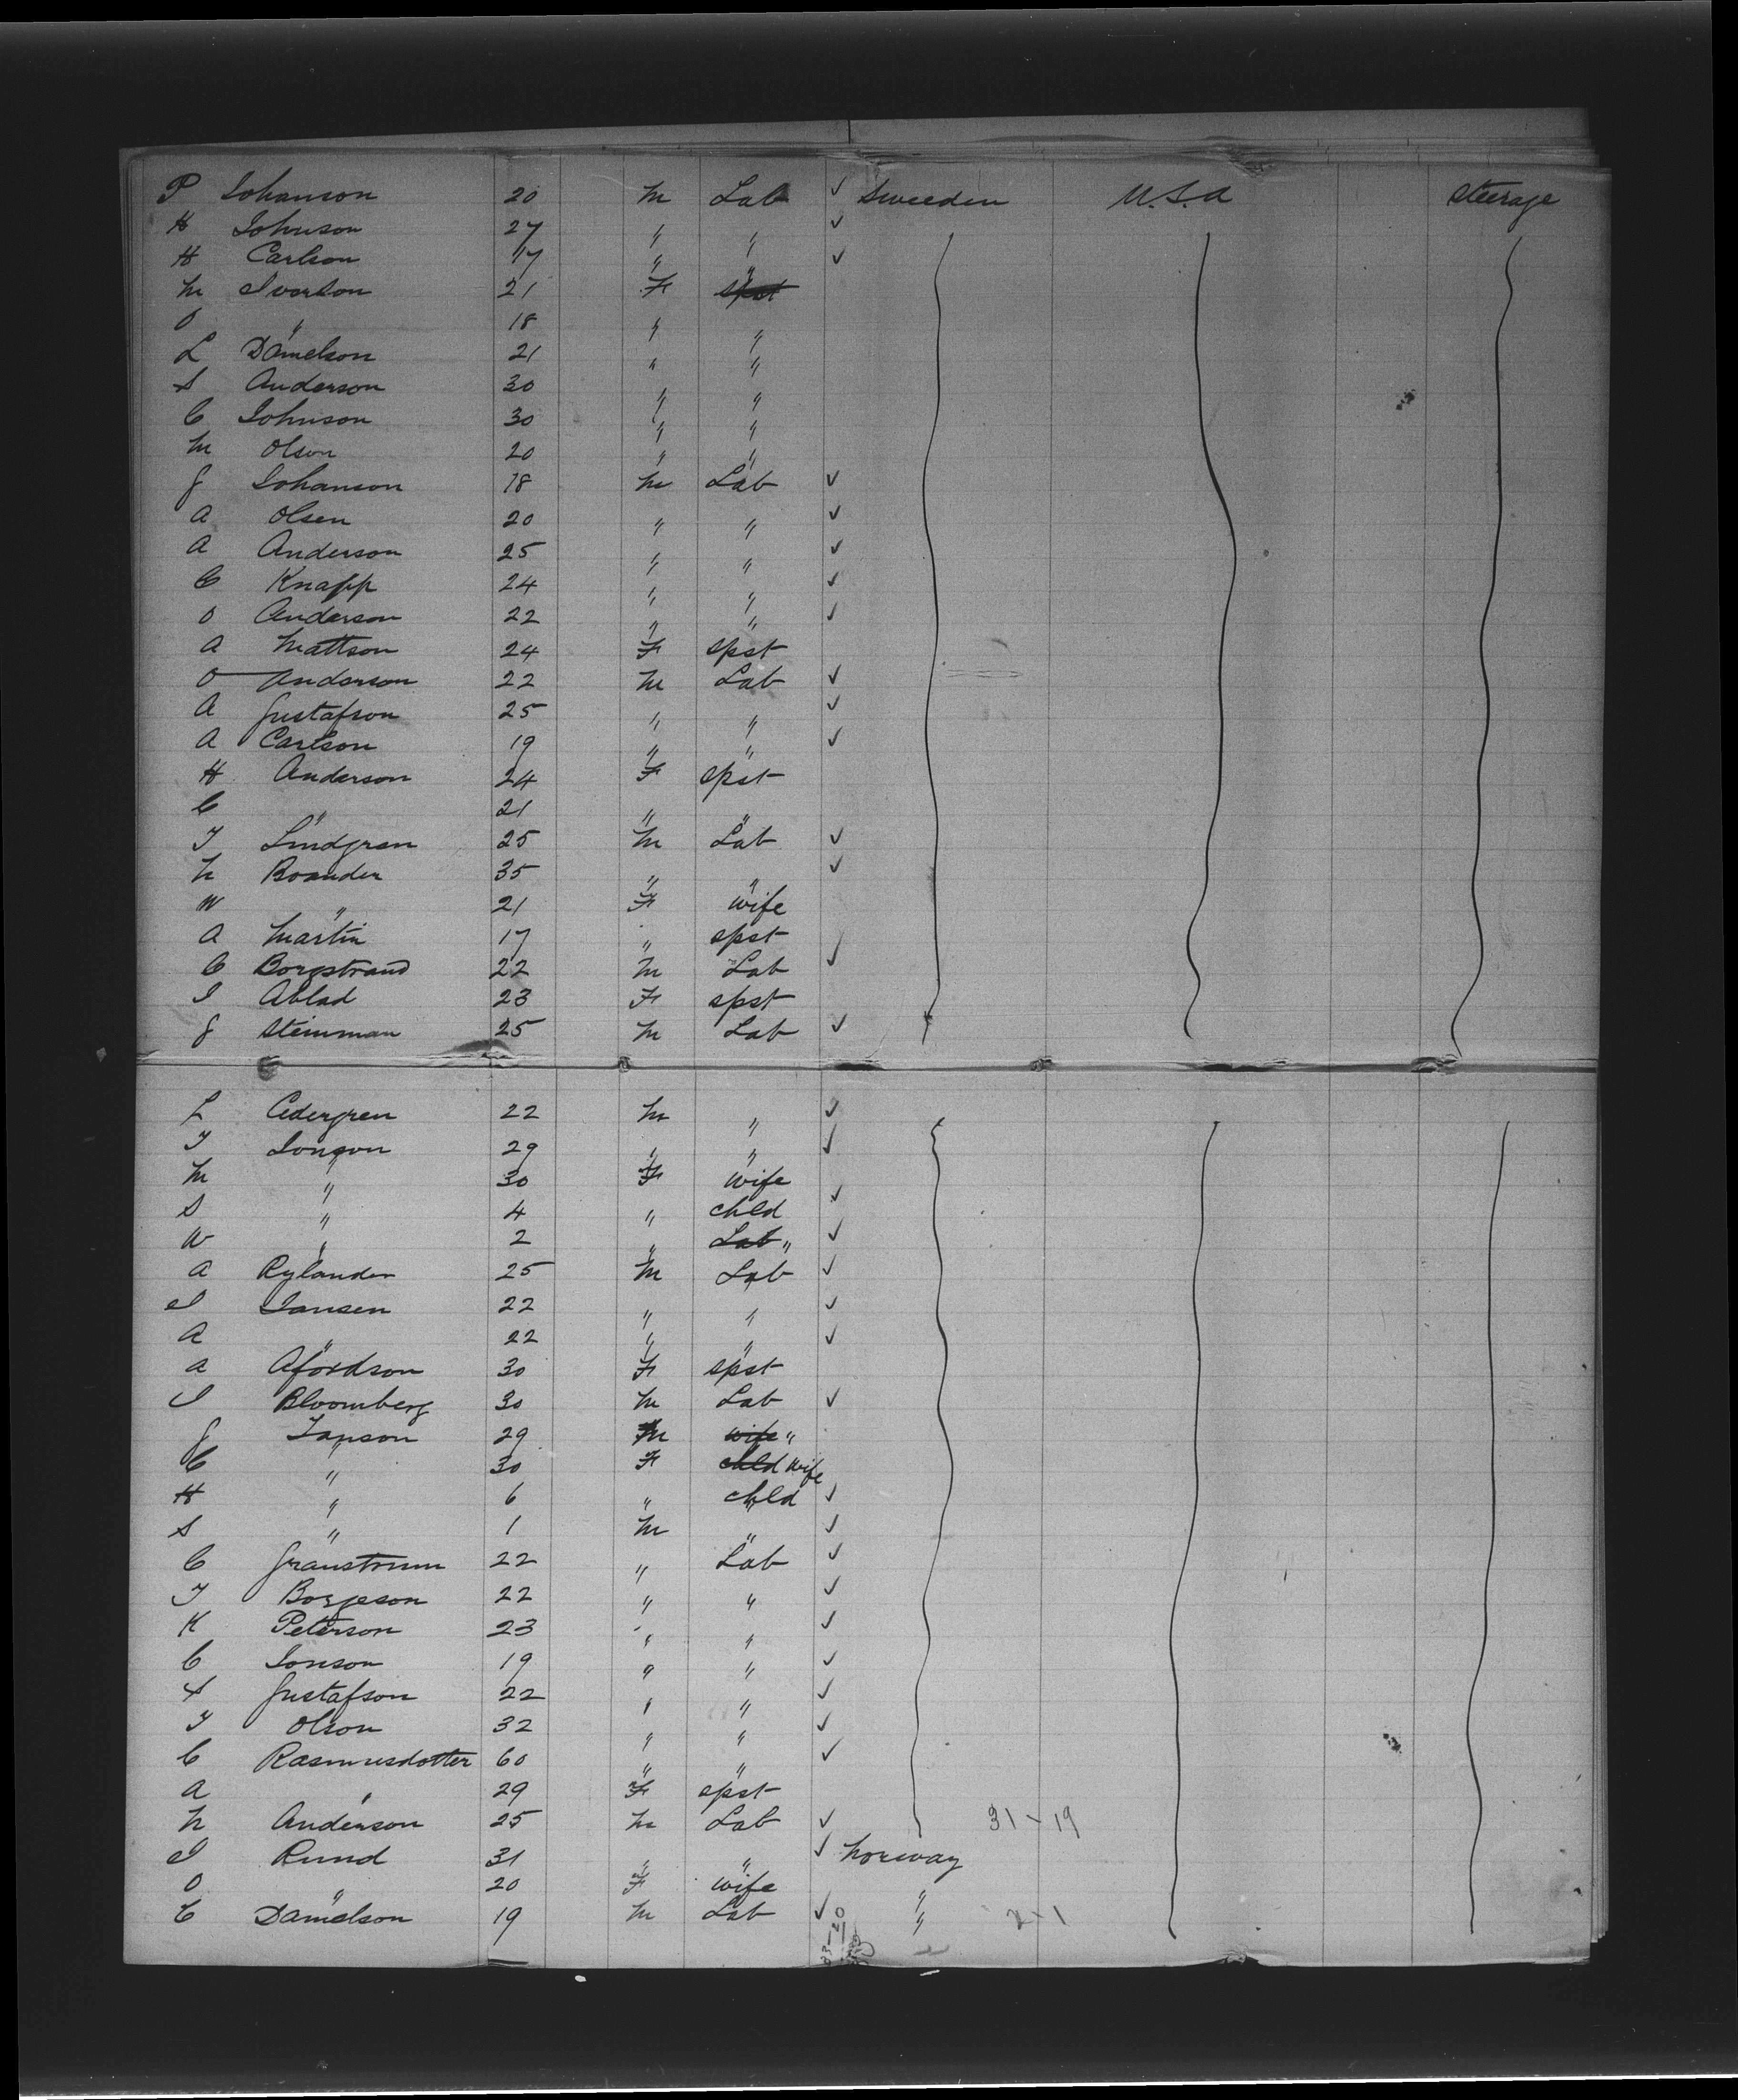 P Johanson 20 M Lab ✓ Sweeden U.S.A Steerage
H Johnson 27 " " ✓
H Carlson 17 " " ✓
M Iverson 21 F spst
O " 18 " "
L Danielson 21 " "
S Anderson 30 " "
C Johnson 30 " "
M Olson 20 " "
J Johanson 18 M Lab ✓
A Olsen 20 " " ✓
A Anderson 25 " " ✓
C Knapp 24 " " ✓
O Anderson 22 " " ✓
A Mattson 24 F spst
O Anderson 22 M Lab ✓
A Gustafson 25 " " ✓
A Carlson 19 " " ✓
H Anderson 24 F spst
C " 21 " "
J Lindgren 25 M Lab ✓
N Boander 35 " " ✓
W " 21 F wife
A Martin 17 " spst
C Borgstrand 22 M Lab ✓
I Ablad 23 F spst
J Steinman 25 M Lab ✓
L Cedergren 22 M " ✓
J Jonson 29 " " ✓
M " 30 F wife
S " 4 " chld ✓
W " 2 " Lab " ✓
A Rylander 25 M Lab ✓
I Jansen 22 " " ✓
A " 22 " " ✓
A Afordson 30 F spst
I Bloomberg 30 M Lab ✓
J Janson 29 M wife "
C " 30 F chld wife
H " 6 " chld ✓
S " 1 M " ✓
C Granstrum 22 " Lab ✓
J Borgeson 22 " " ✓
K Peterson 23 " " ✓
C Jonson 19 " " ✓
S Gustafson 22 " " ✓
J Olson 32 " " ✓
C Rasmusdotter 60 " " ✓
A " 29 F spst
N Anderson 25 M Lab ✓ 31-19
I Rund 31 " " ✓ Norway
O " 20 F wife "
C Danielson 19 M Lab ✓ " 2-1
33-20